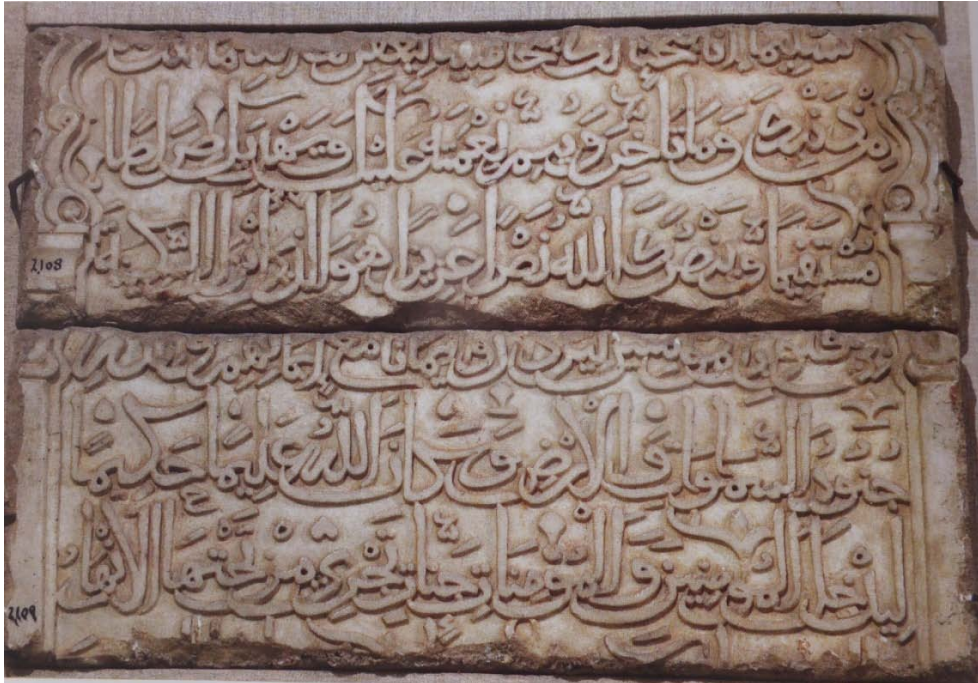 تسليما انا فتحنا لك فتحا مبينا ليغفر لك الله ما تقدم
من ذنبك وما تاخر ويتم نعمته عليك ويهديك صراطا
مستقيما وينصرك الله نصرا عزيزا هو الذي انزل السكينة
2108
في قلوب المومنين ليزدادوا ايمانا مع ايمانهم ولله
جنود السموات والارض وكان الله عليما حكيما
ليدخل المومنين والمومنات جنات تجري من تحتها الانهار
2109